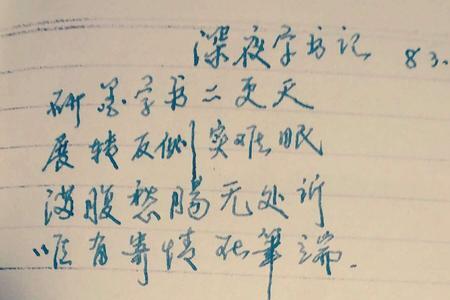 深夜学书记 83.
研墨学书二更天
展转反侧实难眠
满腹愁肠无处诉
唯有寄情在笔端.